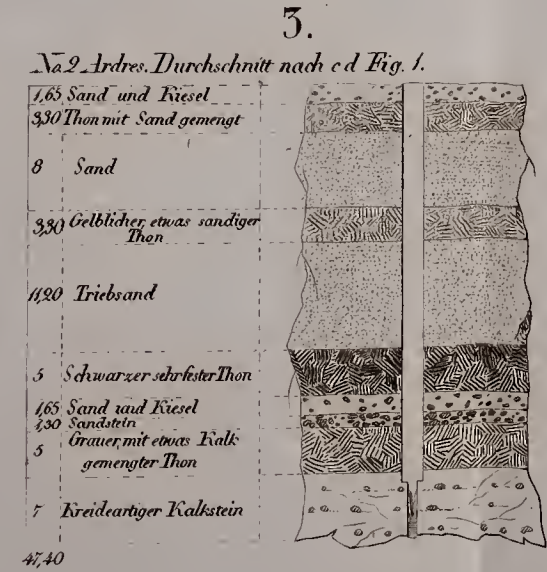 3.
No 2 Ardres. Durchschnitt nach c d Fig. 1.
1,65 Sand und Kiesel
3,30 Thon mit Sand gemengt
8 Sand
3,30 Gelblicher, etwas sandiger
Thon
11,20 Triebsand
5 Schwarzer sehr fester Thon
1,65 Sand und Kiesel
1,30 Sandstein
5 Grauer, mit etwas Kalk
gemengter Thon
7 Kreideartiger Kalkstein
47,40